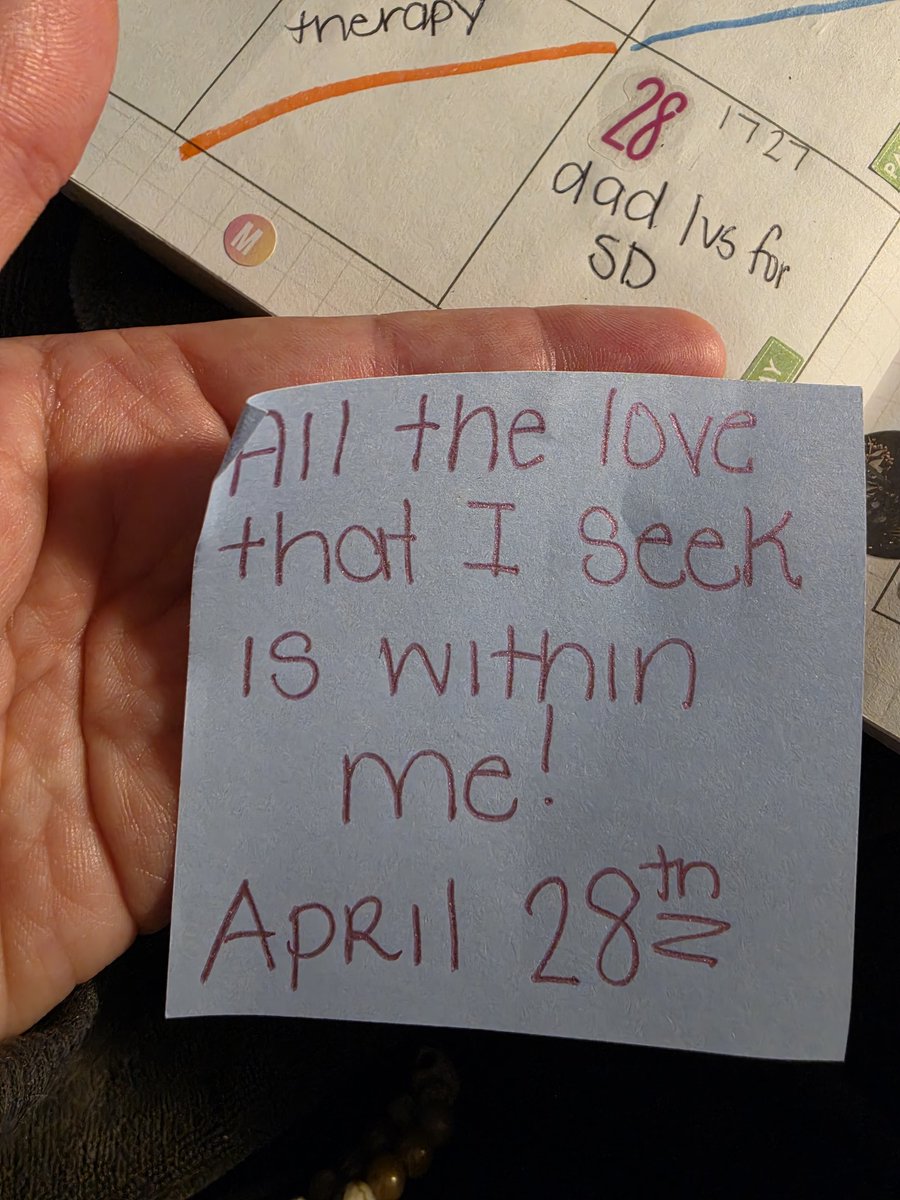 therapy
28 1727
dad lvs for
SD
M
All the love
that I seek
is within
me!
April 28th